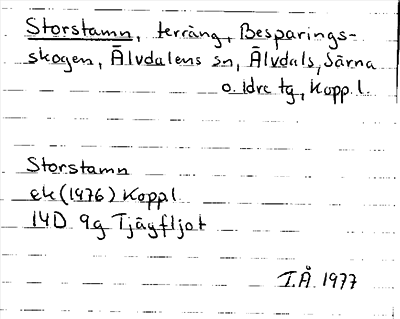 Storstamn, terräng, Besparings-
skogen, Älvdalens sn, Älvdals, Särna
o. Idre tg, Kopp. l.
Storstamn
ek (1976) Koppl
14D 9g Tjägfljot
I.Å. 1977